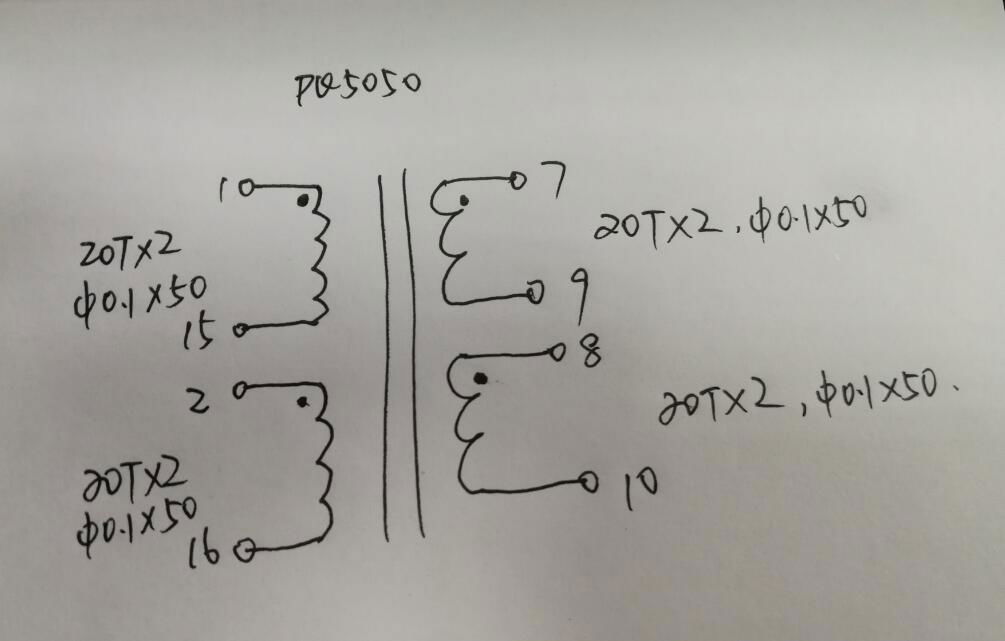 PQ5050
1
7
20T×2
Φ0.1×50
15
20T×2, Φ0.1×50
9
2
8
20T×2
Φ0.1×50
16
20T×2, Φ0.1×50.
10